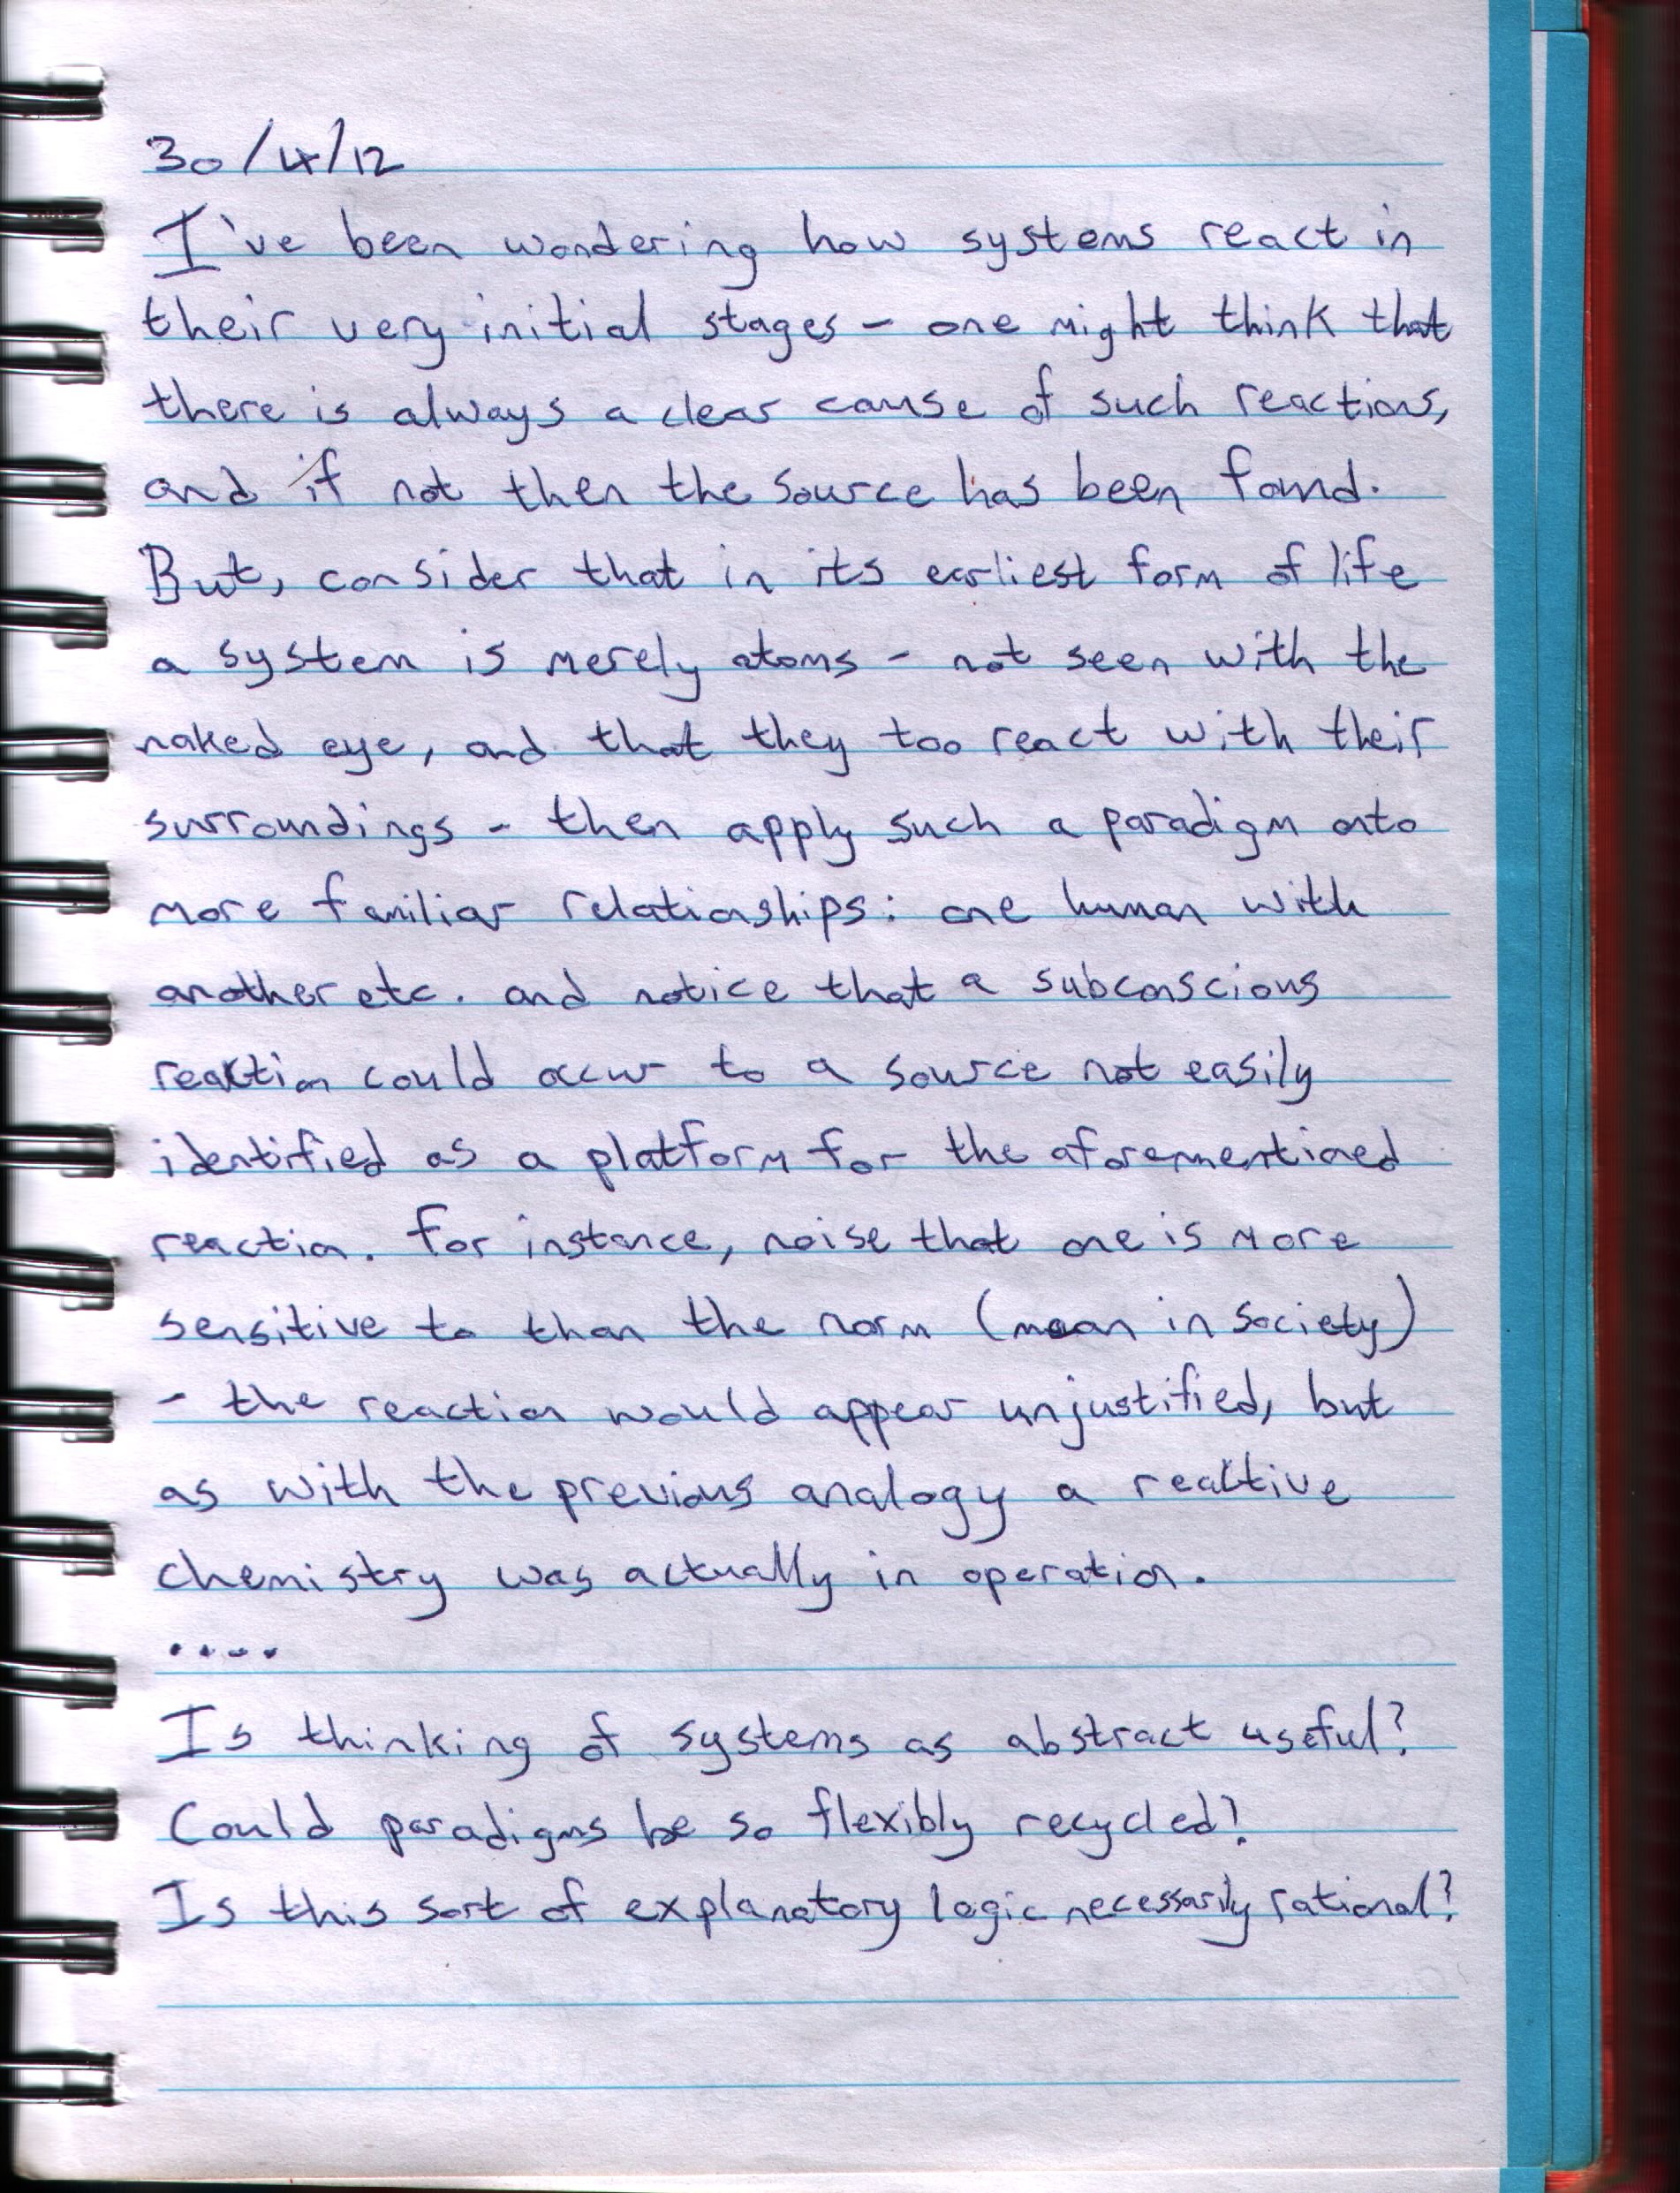 30/4/12
I've been wondering how systems react in
their very initial stages - one might think that
there is always a clear cause of such reactions,
and if not then the source has been found.
But, consider that in its earliest form of life
a system is merely atoms - not seen with the
naked eye, and that they too react with their
surroundings - then apply such a paradigm onto
more familiar relationships: one human with
another etc. and notice that a subconscious
reaction could occur to a source not easily
identified as a platform for the aforementioned
reaction. For instance, noise that one is more
sensitive to than the norm (mean in society)
- the reaction would appear unjustified, but
as with the previous analogy a reactive
chemistry was actually in operation.
....
Is thinking of systems as abstract useful?
Could paradigms be so flexibly recycled?
Is this sort of explanatory logic necessarily rational?